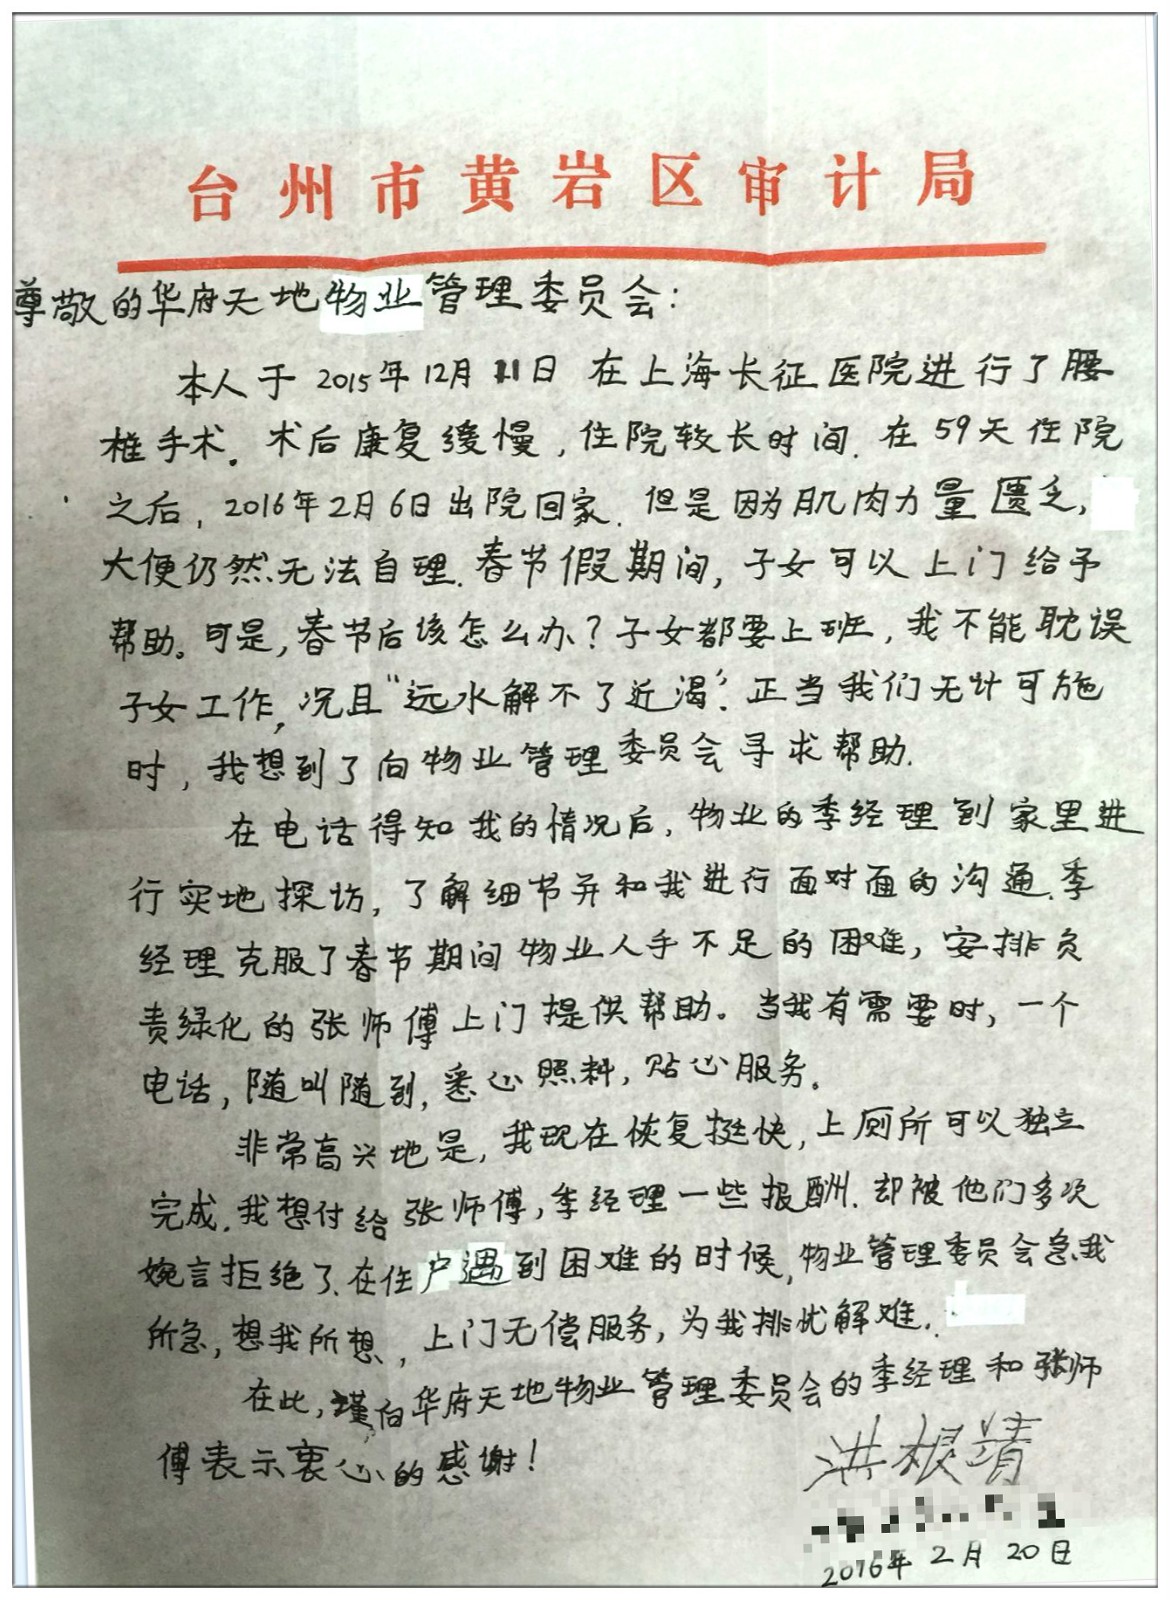 台州市黄岩区审计局
尊敬的华府天地物业管理委员会:
本人于2015年12月11日在上海长征医院进行了腰
椎手术。术后康复缓慢,住院较长时间.在59天住院
之后,2016年2月6日出院回家.但是因为肌肉力量匮乏,
大便仍然无法自理.春节假期间,子女可以上门给予
帮助。可是,春节后该怎么办?子女都要上班,我不能耽误
子女工作,况且“远水解不了近渴”.正当我们无计可施
时,我想到了向物业管理委员会寻求帮助.
在电话得知我的情况后,物业的季经理到家里进
行实地探访,了解细节并和我进行面对面的沟通.季
经理克服了春节期间物业人手不足的困难,安排负
责绿化的张师傅上门提供帮助。当我有需要时,一个
电话,随叫随到,悉心照料,贴心服务。
非常高兴地是,我现在恢复挺快,上厕所可以独立
完成.我想付给张师傅,季经理一些报酬.却被他们多次
婉言拒绝了.在住户遇到困难的时候,物业管理委员会急我
所急,想我所想,上门无偿服务,为我排忧解难.
在此,谨向华府天地物业管理委员会的季经理和张师
傅表示衷心的感谢!
洪根靖
2016年2月20日